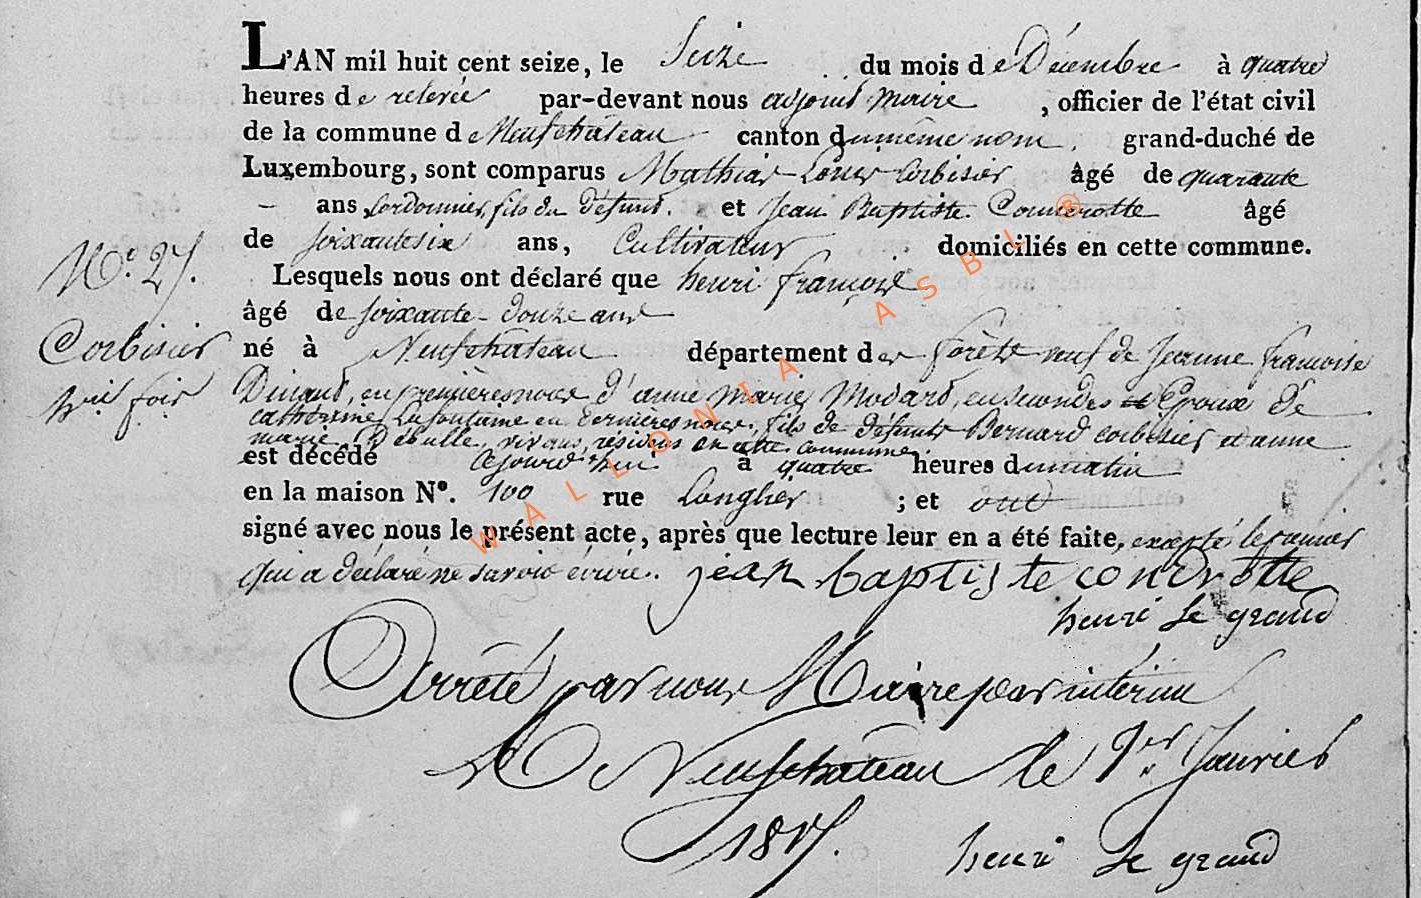 L'AN mil huit cent seize, le Seize du mois de Décembre à quatre
heures de relevée par-devant nous adjoint maire, officier de l'état civil
de la commune de Neufchâteau canton du même nom, grand-duché de
Luxembourg, sont comparus Mathias Louis Corbisier âgé de quarante
ans, Cordonnier, fils du défunt. et Jean Baptiste Conrotte âgé
de soixante six ans, Cultivateur domiciliés en cette commune.
N°. 27.
Lesquels nous ont déclaré que henri françois
âgé de soixante-douze ans
Corbisier
né à Neufchateau département des forêts veuf de Jeanne françoise
Dinant, en premières noces d'anne marie Modard, en secondes Epoux de
catherine Lafontaine en dernières noces, fils de défunts Bernard corbisier et anne
marie, vivans, résidens en cette commune
est décédé ajourd'hui à quatre heures du matin
en la maison N°. 100 rue Longlier ; et ont
signé avec nous le présent acte, après que lecture leur en a été faite, excepté le premier
qui a déclaré ne savoir écrire. jean baptiste conrotte
henri Le grand
Arrêté par nous Maire par intérim
De Neufchateau le 1er Janvier
1817.
henri Le grand
WALLONIA ASBL ®